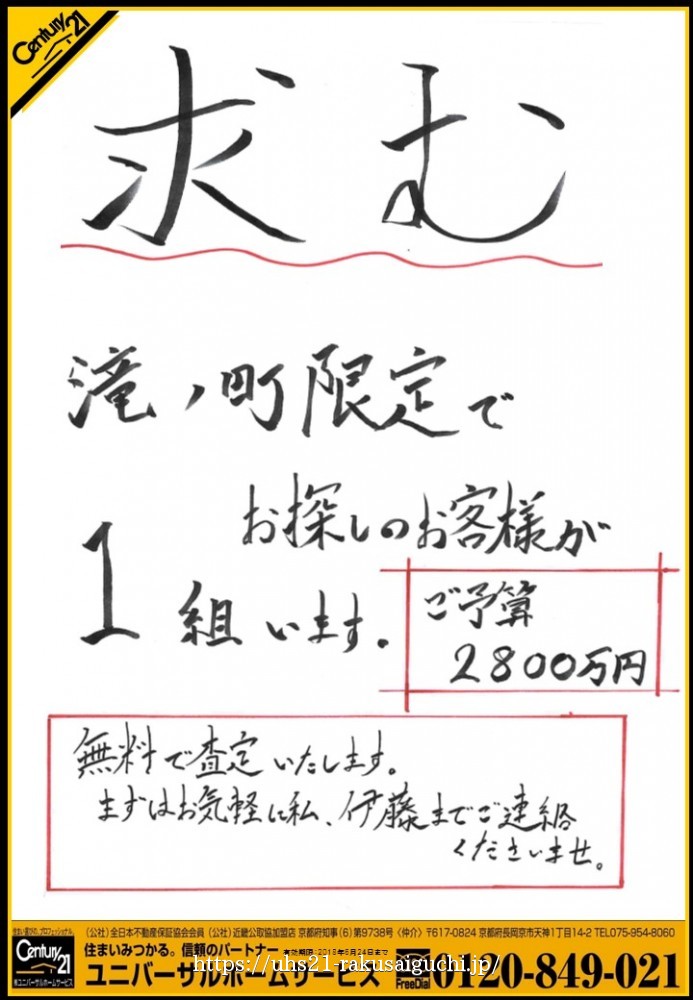 Century 21
求む
滝ノ町限定で
お探しのお客様が
1組います。
ご予算
2800万円
無料で査定いたします。
まずはお気軽に私、伊藤までご連絡
くださいませ。
(公社)全日本不動産保証協会会員 (公社)近畿公取協加盟店 京都府知事(6)第9738号〈仲介〉〒617-0824 京都府長岡京市天神1丁目14-2 TEL075-954-8060
Century 21
住まいみつかる。信頼のパートナー
有効期限:2018年6月24日まで
ユニバーサルホームサービス
FreeDial 0120-849-021
https://uhs21-rakusaiguchi.jp/